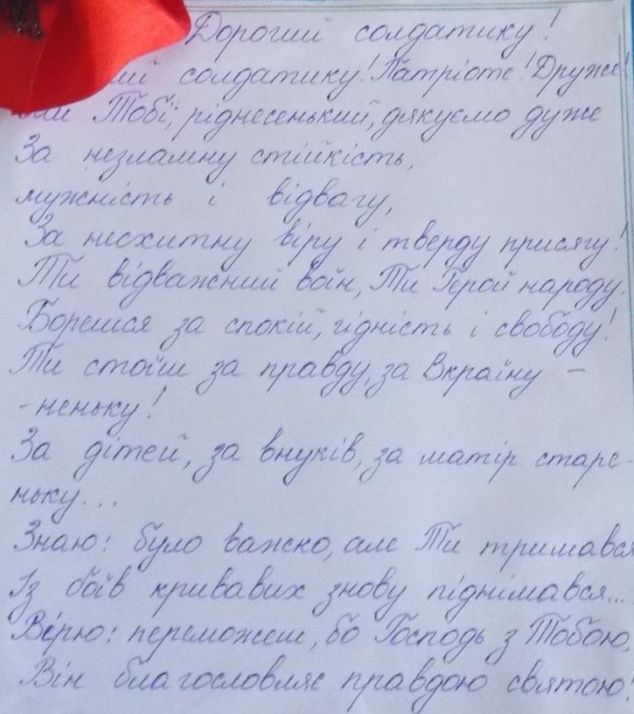 Дорогий солдатику!
солдатику! Патріоте! Друже!
Ми Тобі, ріднесенький, дякуємо дуже
За незламну стійкість,
мужність і відвагу,
За несхитну віру і тверду присягу!
Ти відважний воїн, Ти Герой народу.
Борешся за спокій, гідність і свободу!
Ти стоїш за правду, за Вкраїну -
-неньку!
За дітей, за внуків, за матір старе-
ньку...
Знаю: було важко, але Ти тримався
Із боїв кривавих знову піднімався...
Вірю: переможеш, бо Господь з Тобою,
Він благословляє правдою святою!